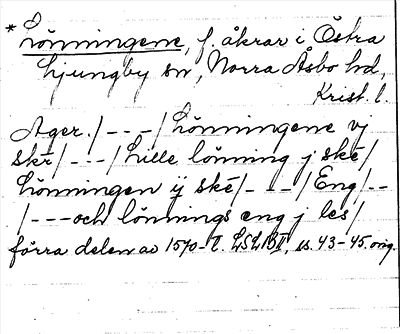 * Lönningene, f. åkrar i Östra
Ljungby sn, Norra Åsbo hd,
Krist. l.
Ager./---/Lönningene vj
skr̄/---/Lille lönning j skē/
Lönningen ij skē/---/Eng/--
/---och lönnings eng j les/
förra delen av 1570-t. LSLBII, ss. 43-45. orig.